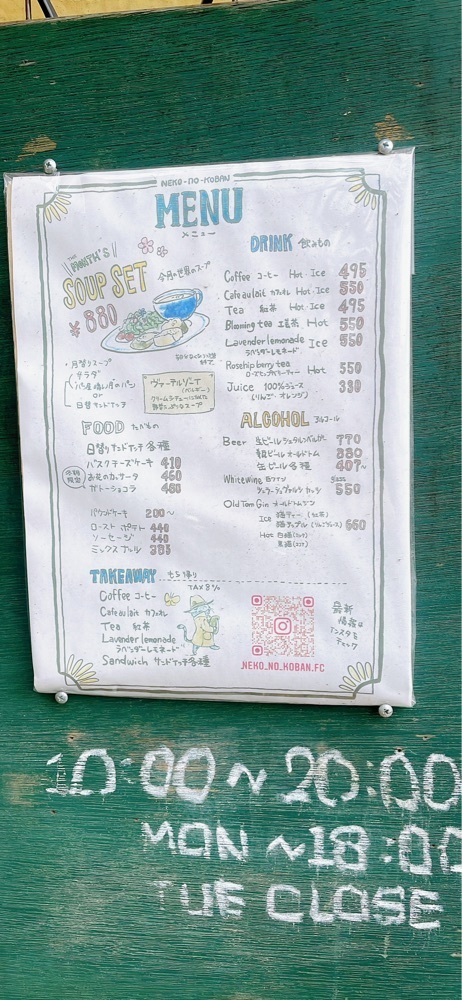 NEKO-NO-KOBAN
MENU
メニュー
THE MONTH'S
SOUP SET
今月の世界のスープ
¥880
・月替りスープ
・サラダ
or
・日替サンドイッチ
ヴァーテルゾーイ
(ベルギー)
クリームシチューに似た
FOOD たべもの
日替りサンドイッチ 各種
バスクチーズケーキ 410
お花のカッサータ 460
ガトーショコラ 450
パウンドケーキ 200〜
ローストポテト 440
ソーセージ 440
ミックスナッツ 385
DRINK 飲みもの
Coffee コーヒー Hot・Ice 495
Cafe au lait カフェオレ Hot・Ice 550
Tea 紅茶 Hot・Ice 495
Blooming tea 工芸茶 Hot 550
Lavender lemonade Ice 550
ラベンダーレモネード
Rosehip berry tea Hot 550
ローズヒップベリーティー
Juice 100%ジュース 330
(りんご・オレンジ)
ALCOHOL アルコール
Beer 生ビール 770
880
缶ビール各種 407〜
White wine 白ワイン glass 550
Old Tom Gin オールドトムジン
Ice 猫ティー (紅茶)
猫アップル (りんごジュース) 660
Hot 白猫
黒猫
TAKEAWAY もち帰り
TAX 8%
Coffee コーヒー
Cafe au lait カフェオレ
Tea 紅茶
Lavender lemonade
ラベンダーレモネード
Sandwich サンドイッチ各種
NEKO_NO_KOBAN.FC
最新
情報は
インスタを
チェック
10:00〜20:00
MON 〜18:00
TUE CLOSE